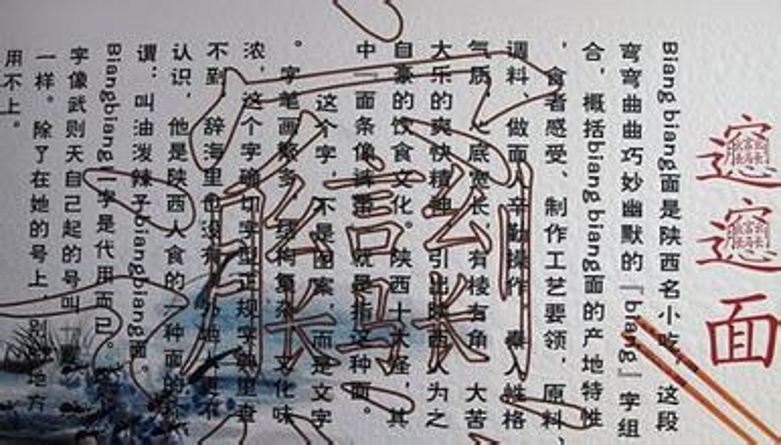 𰻞𰻞面
Biangbiang面是陕西名小吃，这段
弯弯曲曲巧妙幽默的『biang』字组
合，概括biangbiang面的产地特性
，食者感受、制作工艺要领，原料
调料、做面人辛勤操作，秦人性格
气质 底宽长 有棱有角 大苦
大乐的爽快精神 引出陕西人为之
自豪的饮食文化。陕西十大怪，其
中『面条像裤带』就是指这种面。
这个字，不是图案，而是文字
。字笔画繁多，结构复杂，文化味
浓，这个字确切字型正规字典里查
不到 辞海里也没有
认识，他是陕西人食的一种面的
谓：叫油泼辣子biangbiang面。
Biangbiang 字是代用而已。
字像武则天自己起的号叫『
一样。除了在她的号上，别 地方
用不上。